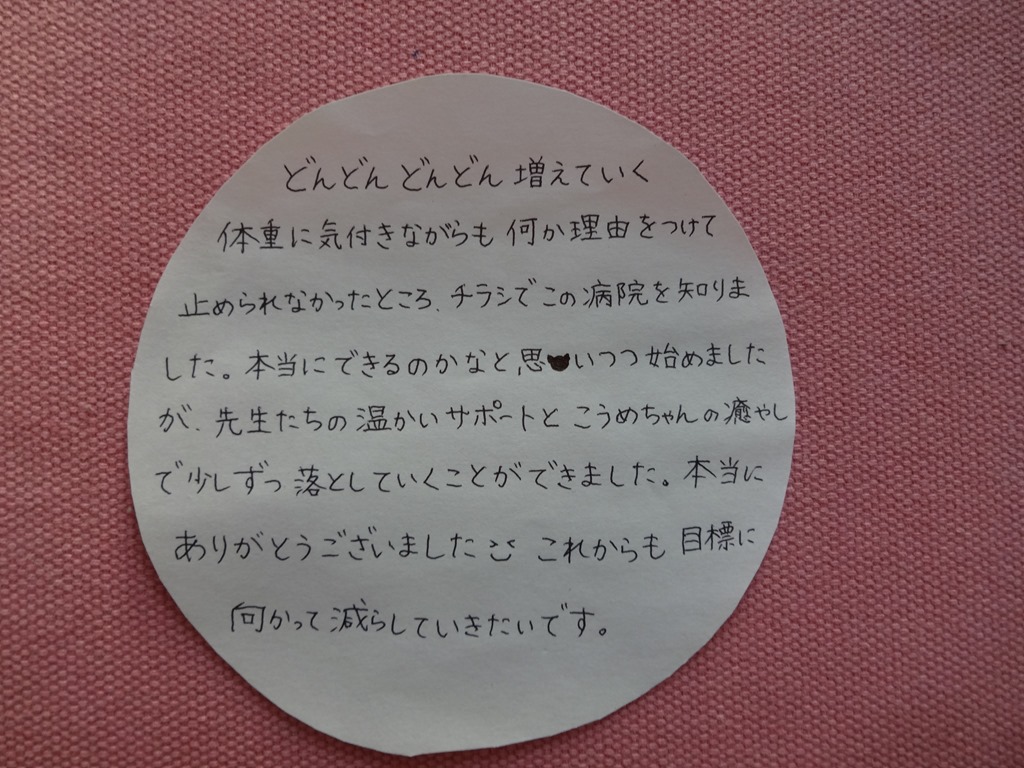 どんどんどんどん増えていく
体重に気付きながらも何か理由をつけて
止められなかったところ、チラシでこの病院を知りま
した。本当にできるのかなと、思いつつ始めました
が、先生たちの温かいサポートとこうめちゃんの癒やし
で少しずつ落としていくことができました。本当に
ありがとうございました これからも目標に
向かって減らしていきたいです。